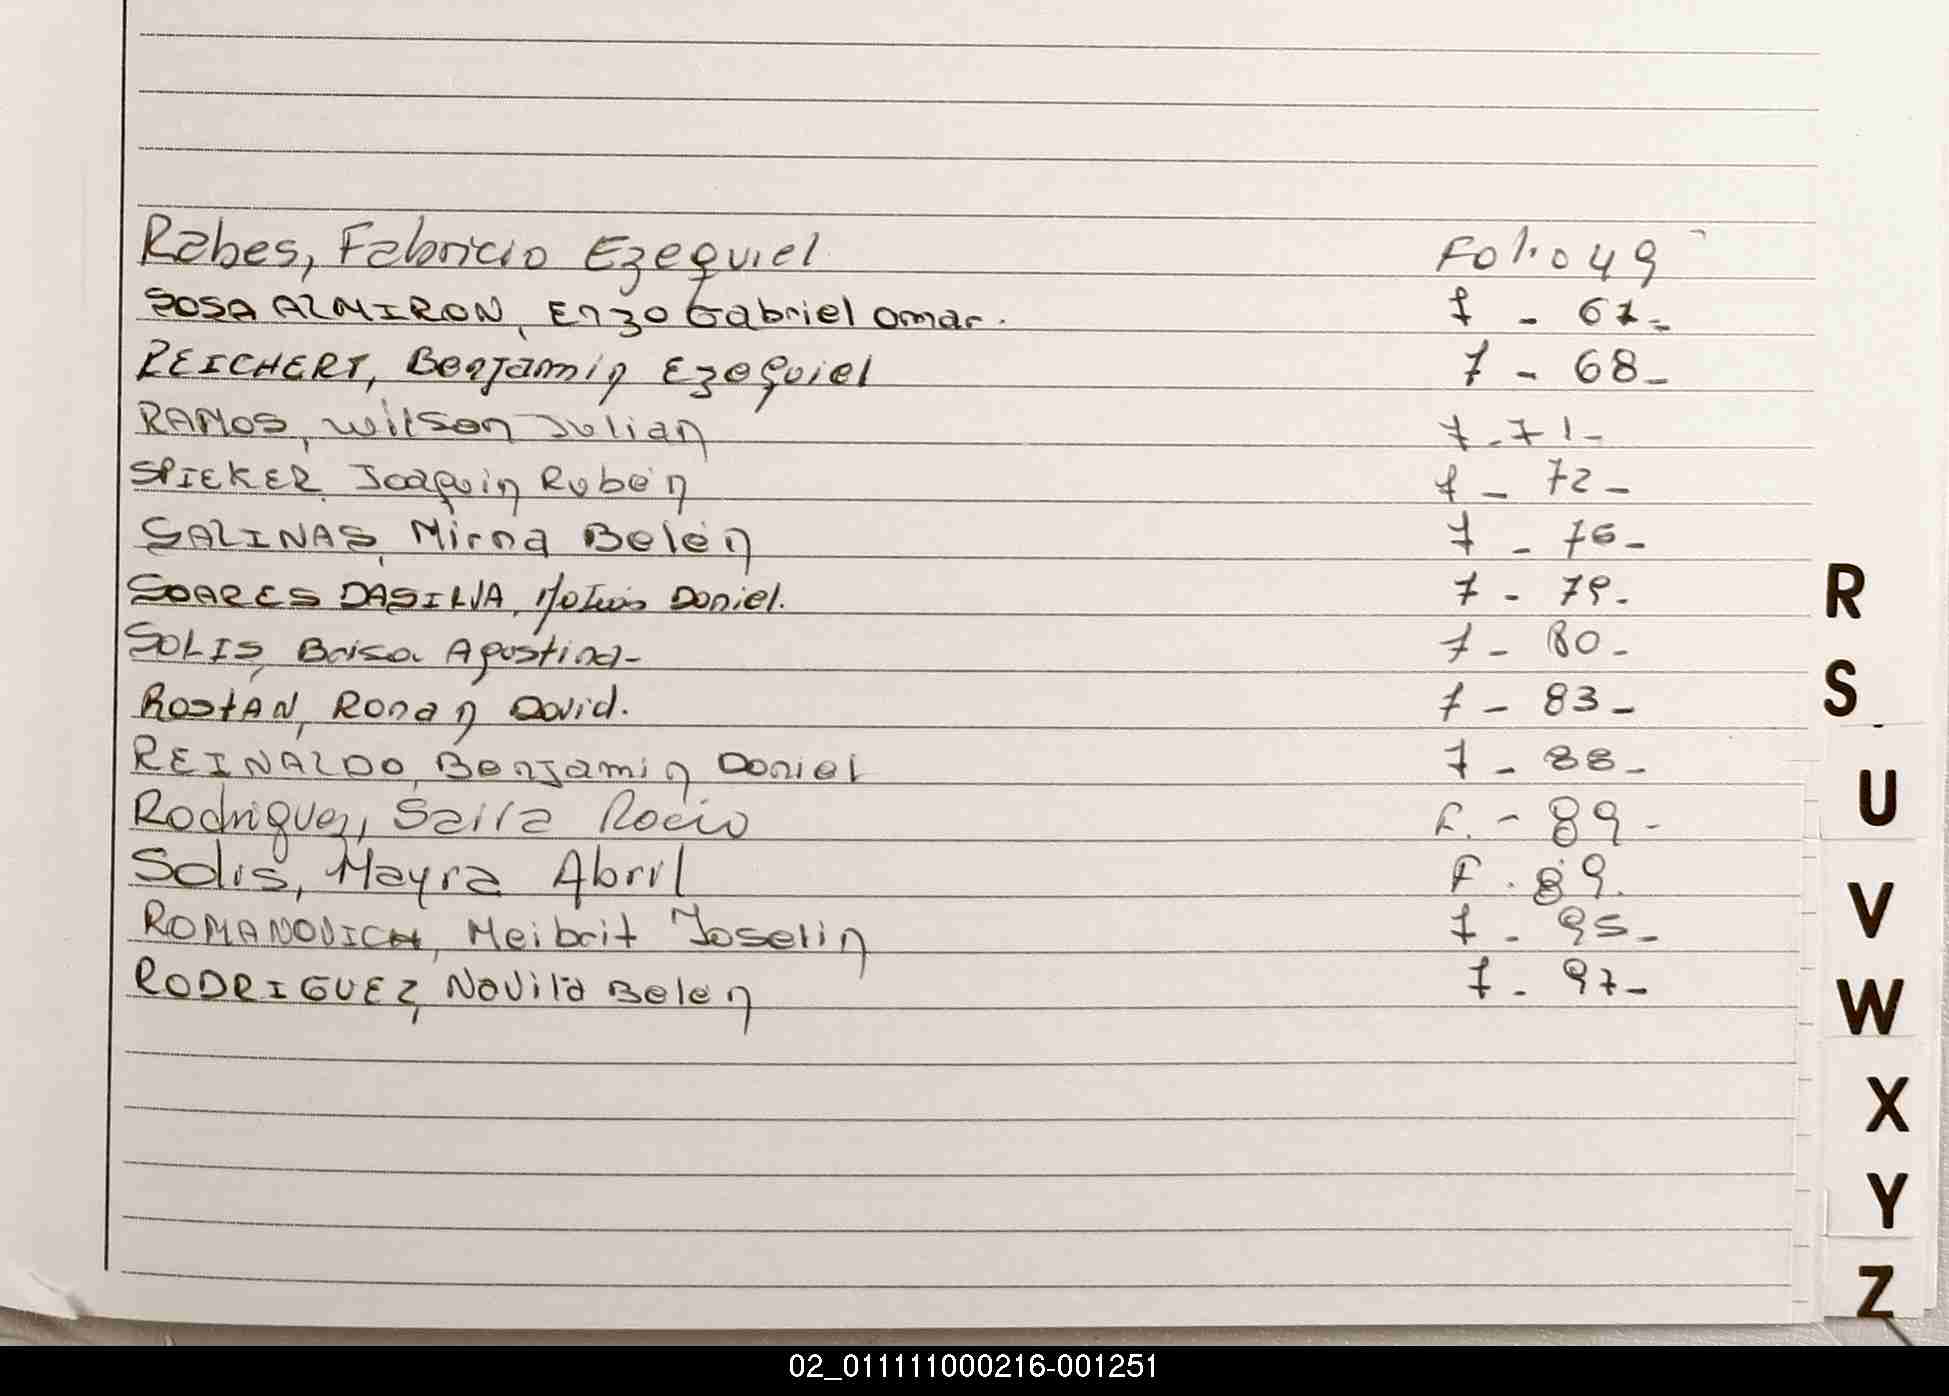 Rabes, Fabricio Ezequiel Folio 49
SOSA ALMIRON, Enzo Gabriel Omar. f - 67-
REICHERT, Benjamin Ezequiel f - 68-
RAMOS, Wilson Julian f - 71-
SPIEKER, Joaquin Rubén f - 72-
SALINAS, Mirna Belén f - 76-
SOARES DASILVA, Matias Daniel. f - 79-
SOLIS, Brisa Agostina- f - 80-
ROSTAN, Ronan David. f - 83-
REINALDO, Benjamin Daniel f - 88-
Rodriguez, Saira Rocio F. - 89-
Solis, Mayra Abril F. 89.
ROMANOVICH, Meibrit Joselin f - 95-
RODRIGUEZ, Belen f - 97-
R
S
U
V
W
X
Y
Z
02_011111000216-001251